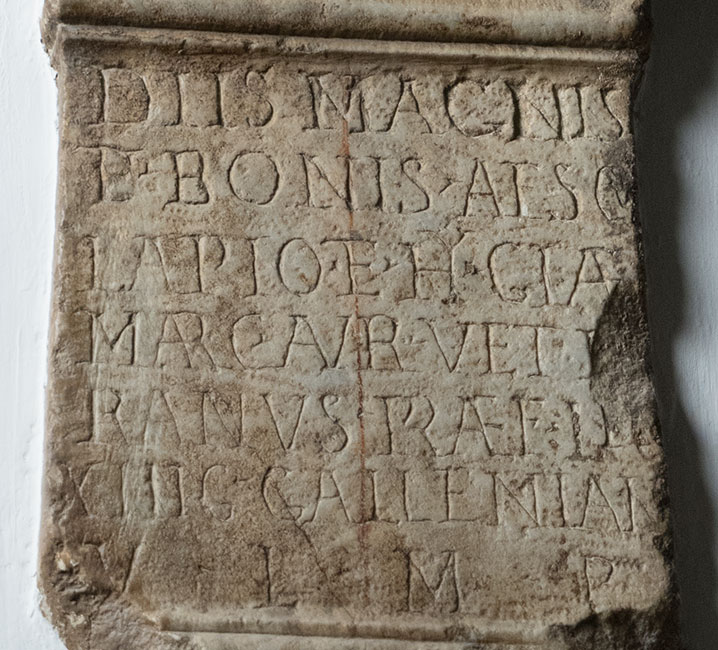 DIIS MAGNIS
ET·BONIS·AESC
LAPIO·ET·HYGIA
MARC AVR·VETE
RANVS PRAEF·LE
XIIIG·GALLENIAN
V L M P